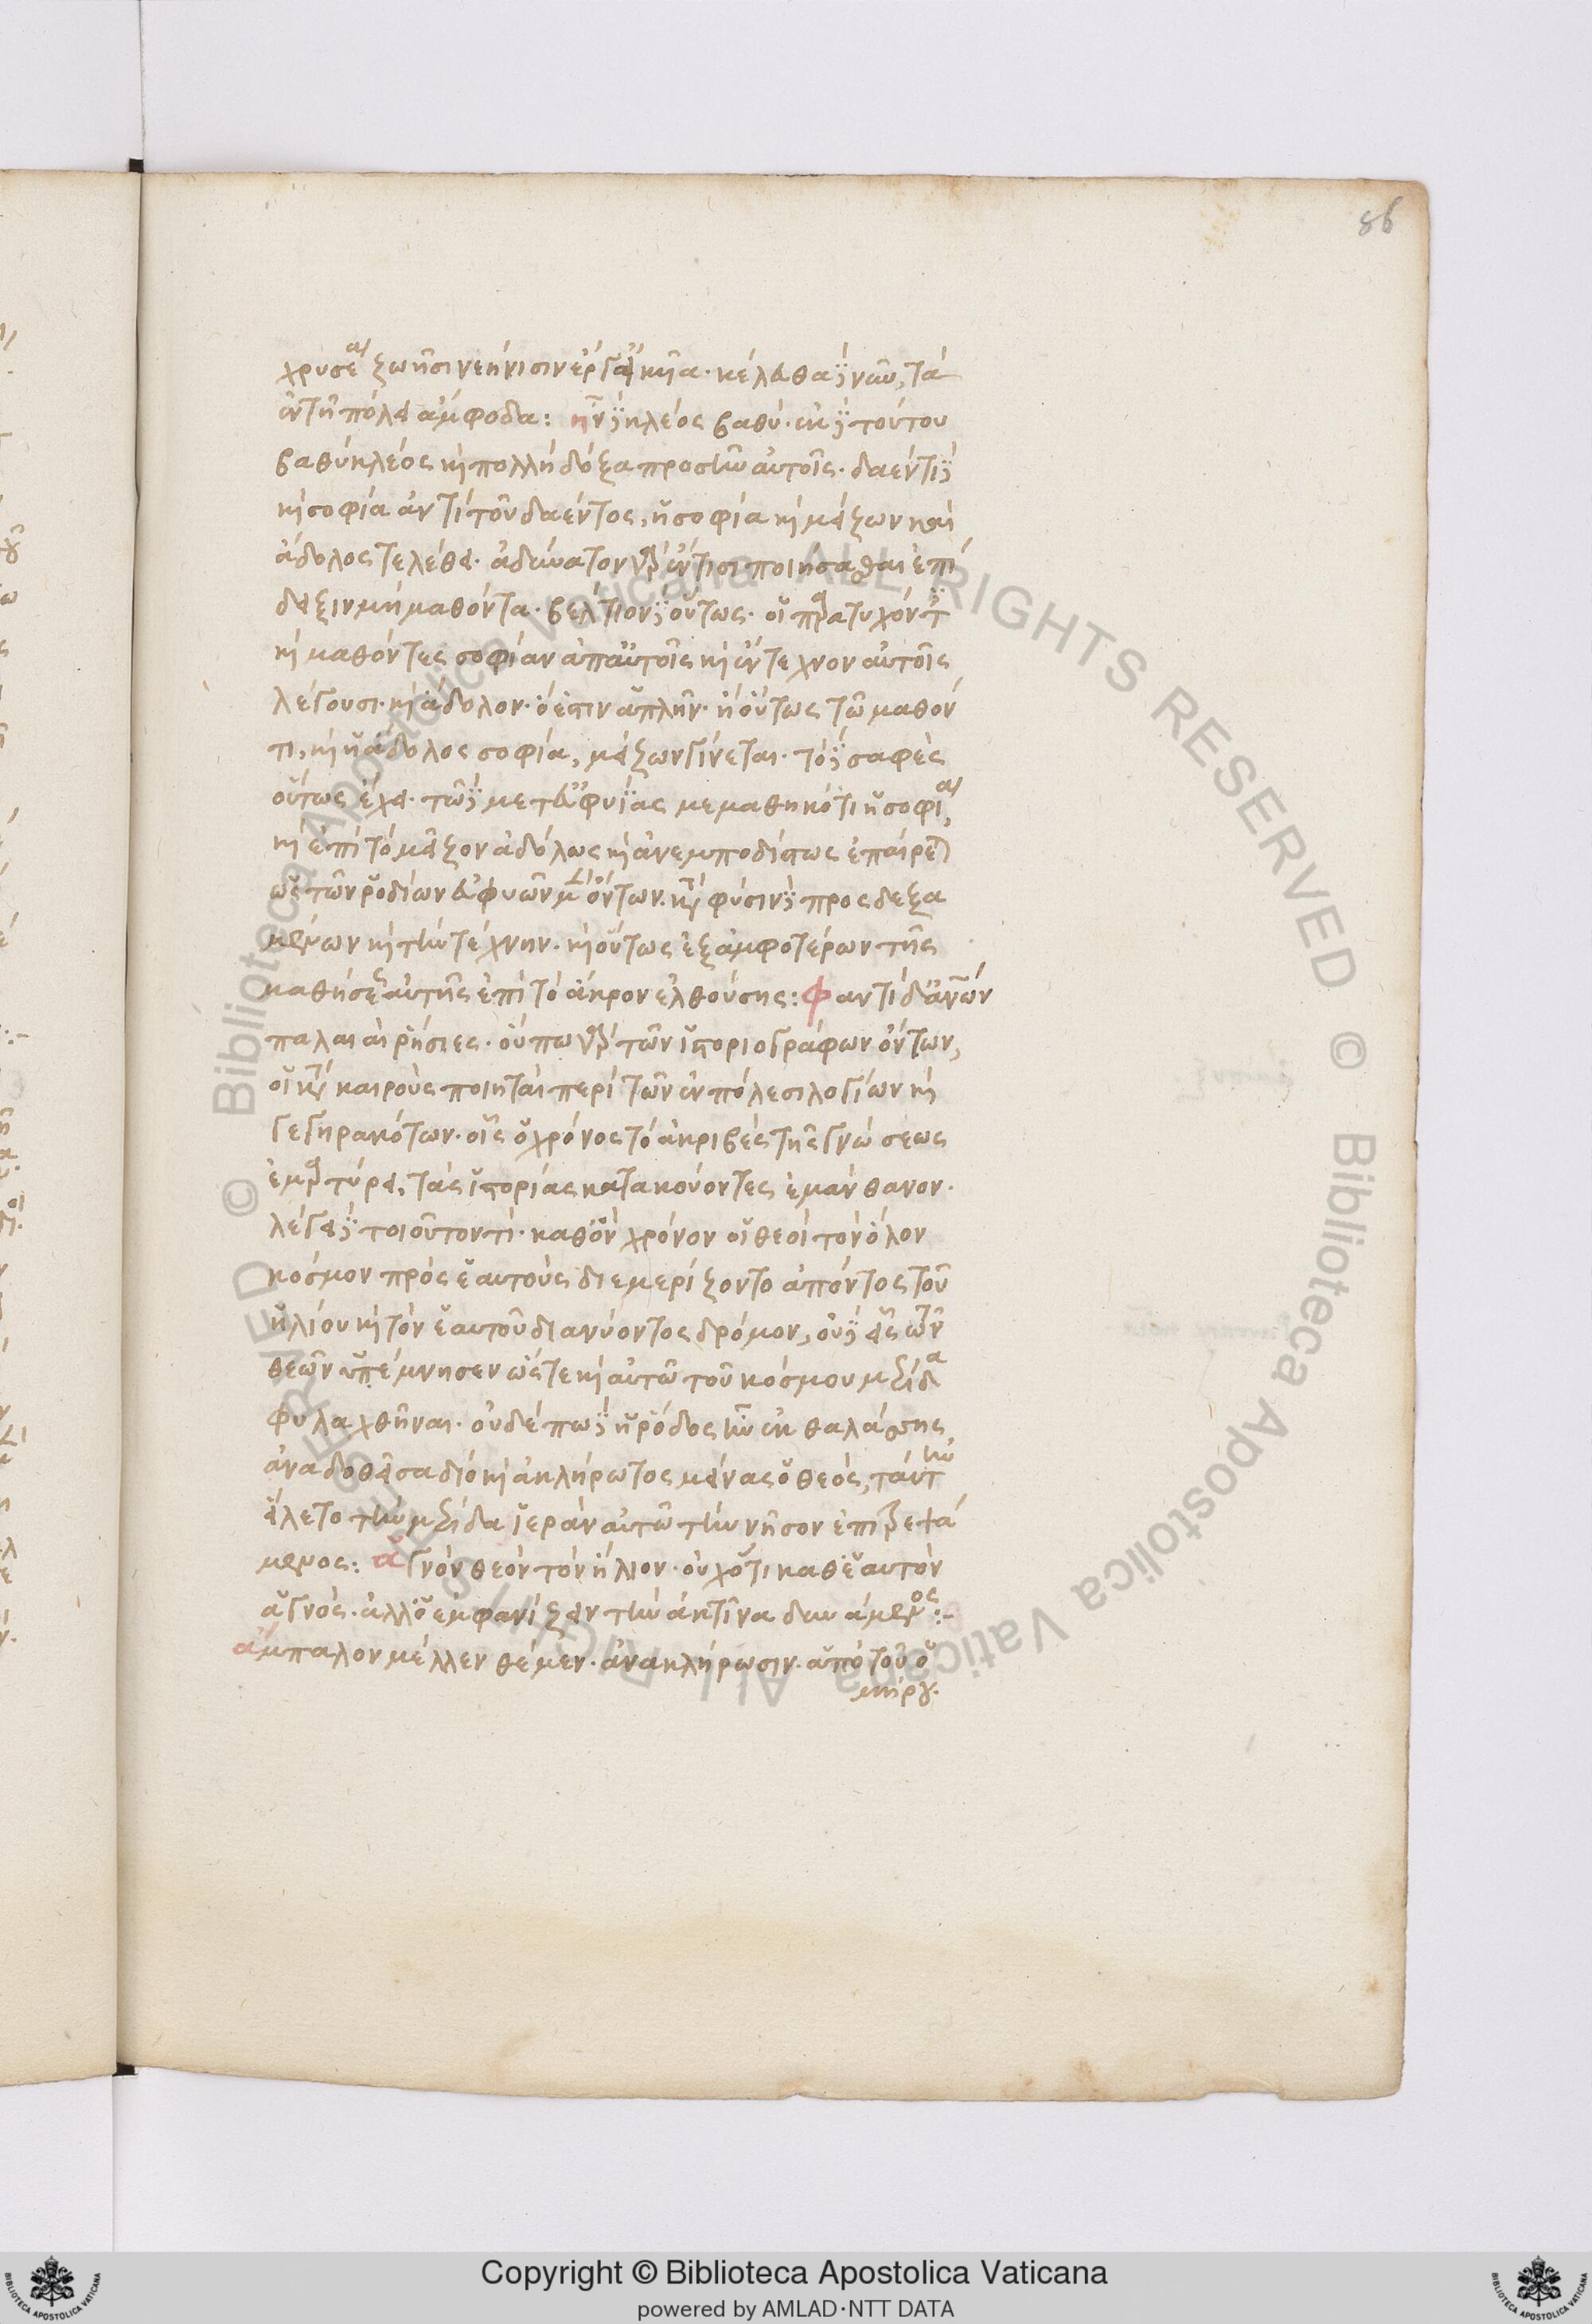 86
χρυσέαι ζωῆσιν ἐῆνισιν ἐργα κῆα· κέλευθα δὲ νῦν, τὰ
ἐν τῆ πόλει ἄμφοδα: ἦν δὲ κλέος βαθύ· ἐκ δὲ τούτου
βαθὺ κλέος καὶ πολλὴ δόξα προσῆν αὐτοῖς· δαέντι δὲ
καὶ σοφία ἀντὶ τοῦ δαέντος, ἡ σοφία καὶ μείζων καὶ
ἄδολος τελέθει· ἀδύνατον γὰρ ἔν τισι ποιήσασθαι ἐπί
δειξιν μὴ μαθόντα· βέλτιον δὲ οὕτως· οἱ παρατυχόντες
καὶ μαθόντες σοφίαν ἀπ αὐτοῖς καὶ ἔντεχνον αὐτοῖς
λέγουσι· καὶ ἄδολον· ὅ ἐστιν ἁπλῆν· ἢ οὕτως τῶ μαθόν
τι, καὶ ἡ ἄδολος σοφία, μείζων γίνεται· τὸ δὲ σαφὲς
οὕτως ἔχει· τῶ δὲ μετ εὐφυΐας μεμαθηκότι ἡ σοφία,
καὶ ἐπὶ τὸ μεῖζον ἀδόλως καὶ ἀνεμποδίστως ἐπαίρεται
ὡς τῶν ῥοδίων εὐφυῶν μὲν ὄντων· κατὰ φύσιν δὲ προσδεξα
μένων καὶ τὴν τέχνην· καὶ οὕτως ἐξ ἀμφοτέρων τῆς
μαθήσεως αὐτῆς ἐπὶ τὸ ἄκρον ἐλθούσης: φαντὶ δ ἀνῶν
παλαιαὶ ῥήσιες· οὔπω γὰρ τῶν ἱστοριογράφων ὄντων,
οἱ κατὰ καιροὺς ποιηταὶ περὶ τῶν ἐν πόλεσι λογίων καὶ
γεγηρακότων· οἷς ὁ χρόνος τὸ ἀκριβὲς τῆς γνώσεως
ἐμαρτύρει, τὰς ἱστορίας κατακούοντες ἐμάνθανον·
λέγει δὲ τοιοῦτον τι· καθ ὃν χρόνον οἱ θεοὶ τὸν ὅλον
κόσμον πρὸς ἑαυτοὺς διεμερίζοντο ἀπόντος τοῦ
ἡλίου καὶ τὸν ἑαυτοῦ διανύοντος δρόμον, οὐδ εἷς τῶν
θεῶν ὑπέμνησεν ὥστε καὶ αὐτῶ τοῦ κόσμου μερίδα
φυλαχθῆναι· οὐδέπω δὲ ἡ ῥόδος ἦν ἐκ θαλάσσης
ἀναδοθεῖσα διὸ καὶ ἀκλήρωτος μείνας ὁ θεός, ταύτην
εἵλετο τὴν μερίδα ἱερὰν αὐτῶ τὴν νῆσον ἐπιτρεψά
μενος: ἁγνὸν θεὸν τὸν ἥλιον· οὐχ ὅτι καθ ἑαυτὸν
ἁγνός· ἀλλ ὁ ἐμφανίζειν τὴν ἀκτῖνα δυνάμενος:-
ἄμπαλον μέλλεν θέμεν· ἀνακλήρωσιν· ἀπὸ τοῦ ὁ
μήρου·
Copyright © Biblioteca Apostolica Vaticana
powered by AMLAD·NTT DATA